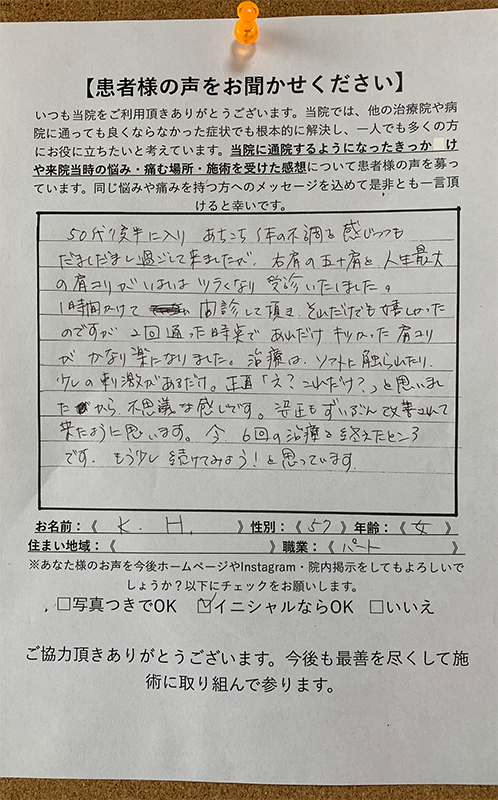 【患者様の声をお聞かせください】
いつも当院をご利用頂きありがとうございます。当院では、他の治療院や病
院に通っても良くならなかった症状でも根本的に解決し、一人でも多くの方
にお役に立ちたいと考えています。当院に通院するようになったきっか け
や来院当時の悩み・痛む場所・施術を受けた感想について患者様の声を募っ
ています。同じ悩みや痛みを持つ方へのメッセージを込めて是非とも一言頂
けると幸いです。
50代後半に入り あちこち 体の不調を感じつつも
だましだまし過ごして来ましたが、右肩の五十肩と、人生最大
の肩コリがいよいよ ツラくなり 受診いたしました。
1時間かけて 問診して頂き、それだけでも嬉しかった
のですが 2回通った時点で あれだけ キツかった肩コリ
が かなり楽になりました。治療は、ソフトに触られたり、
少しの刺激があるだけ。正直「え?これだけ?」と思いまし
た から 不思議な感じです。 ずいぶん改善されて
来たように思います。今、6回の治療を終えたところ
です。もう少し続けてみよう!と思っています。
お名前:《 K. H. 》性別:《 57 》年齢:《 女 》
住まい地域:《 》職業:《 パート 》
※あなた様のお声を今後ホームページやInstagram・院内掲示をしてもよろしいで
しょうか?以下にチェックをお願いします。
□写真つきでOK ☑イニシャルならOK □いいえ
ご協力頂きありがとうございます。今後も最善を尽くして施
術に取り組んで参ります。